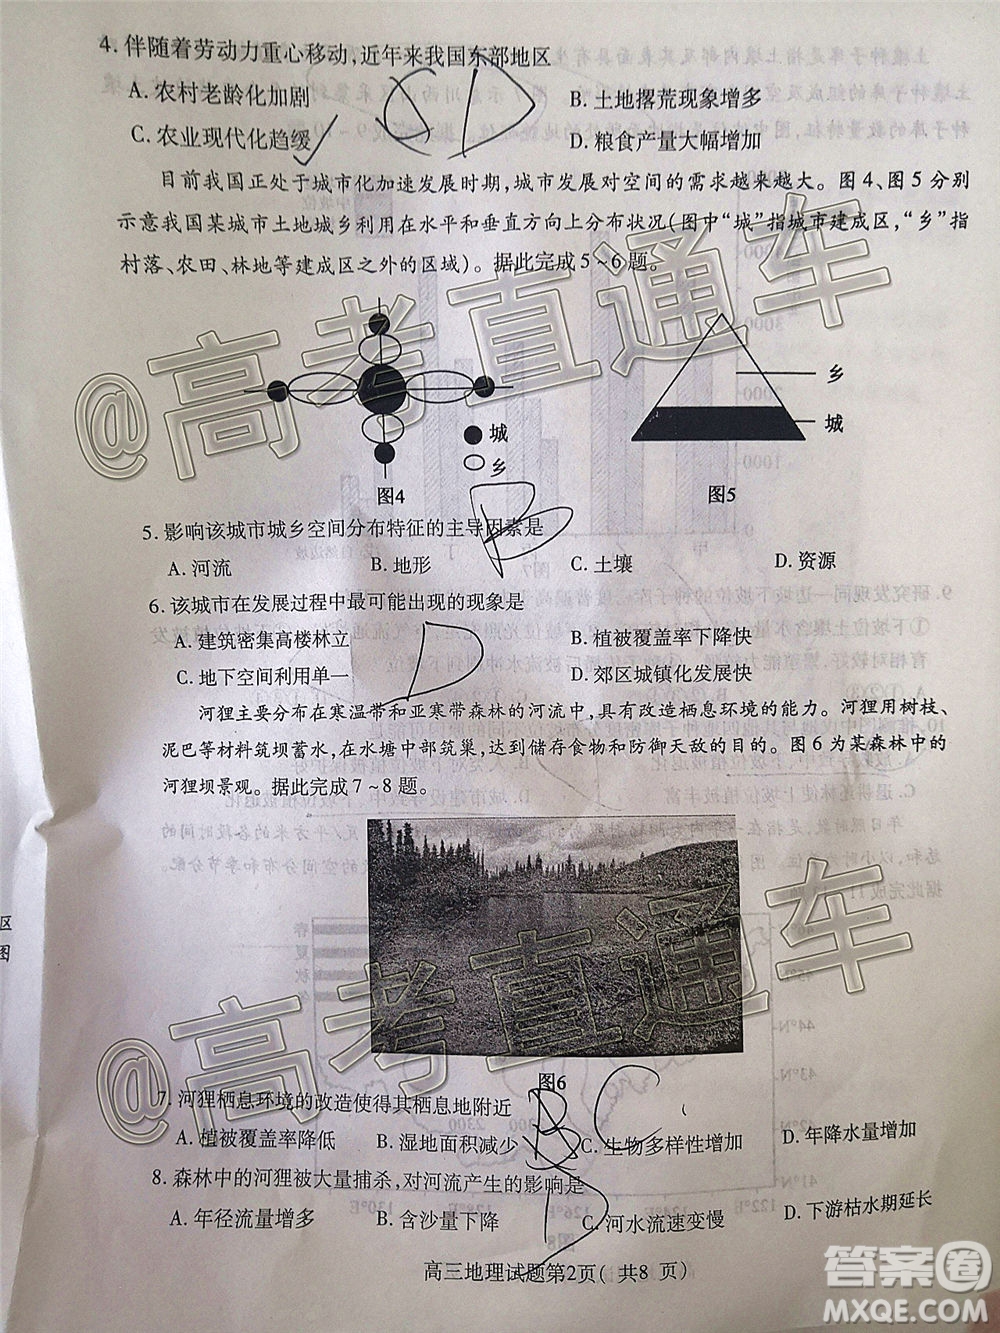 4. 伴随着劳动力重心移动,近年来我国东部地区
A. 农村老龄化加剧 B. 土地撂荒现象增多
C. 农业现代化趋缓 D. 粮食产量大幅增加
目前我国正处于城市化加速发展时期,城市发展对空间的需求越来越大。图4、图5分别
示意我国某城市土地城乡利用在水平和垂直方向上分布状况(图中“城”指城市建成区,“乡”指
村落、农田、林地等建成区之外的区域)。据此完成5~6题。
乡
城
城
乡
图4 图5
5. 影响该城市城乡空间分布特征的主导因素是
A. 河流 B. 地形 C. 土壤 D. 资源
6. 该城市在发展过程中最可能出现的现象是
A. 建筑密集高楼林立 B. 植被覆盖率下降快
C. 地下空间利用单一 D. 郊区城镇化发展快
河狸主要分布在寒温带和亚寒带森林的河流中,具有改造栖息环境的能力。河狸用树枝、
泥巴等材料筑坝蓄水,在水塘中部筑巢,达到储存食物和防御天敌的目的。图6为某森林中的
河狸坝景观。据此完成7~8题。
图6
7. 河狸栖息环境的改造使得其栖息地附近
A. 植被覆盖率降低 B. 湿地面积减少 C. 生物多样性增加 D. 年降水量增加
8. 森林中的河狸被大量捕杀,对河流产生的影响是
A. 年径流量增多 B. 含沙量下降 C. 河水流速变慢 D. 下游枯水期延长
高三地理试题第2页( 共8 页)
@高考直通车
@高考直通车
D
B
D
C
D
区
图
答案圈
MXQE.COM